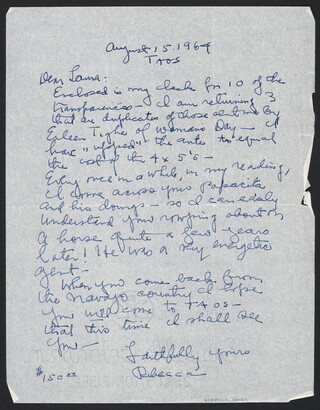 August 15. 1964
TAOS
Dear Laura:
Enclosed is my check for 10 of the
transparencies - I am returning 3
that are duplicates of those sent me by
Eileen Tighe of Woman's Day - I
have "upped" the ante to equal
the cost of the 4 x 5's -
Every once in a while, in my reading,
I come across your Papacita
and his doings - so I can easily
understand your romping about on
a horse quite a few years
later! He was a very energetic
gent -
When you come back from
the Navajo country I hope
you will come to TAOS -
that this time I shall see
you -
Faithfully yours
Rebecca
$150.00